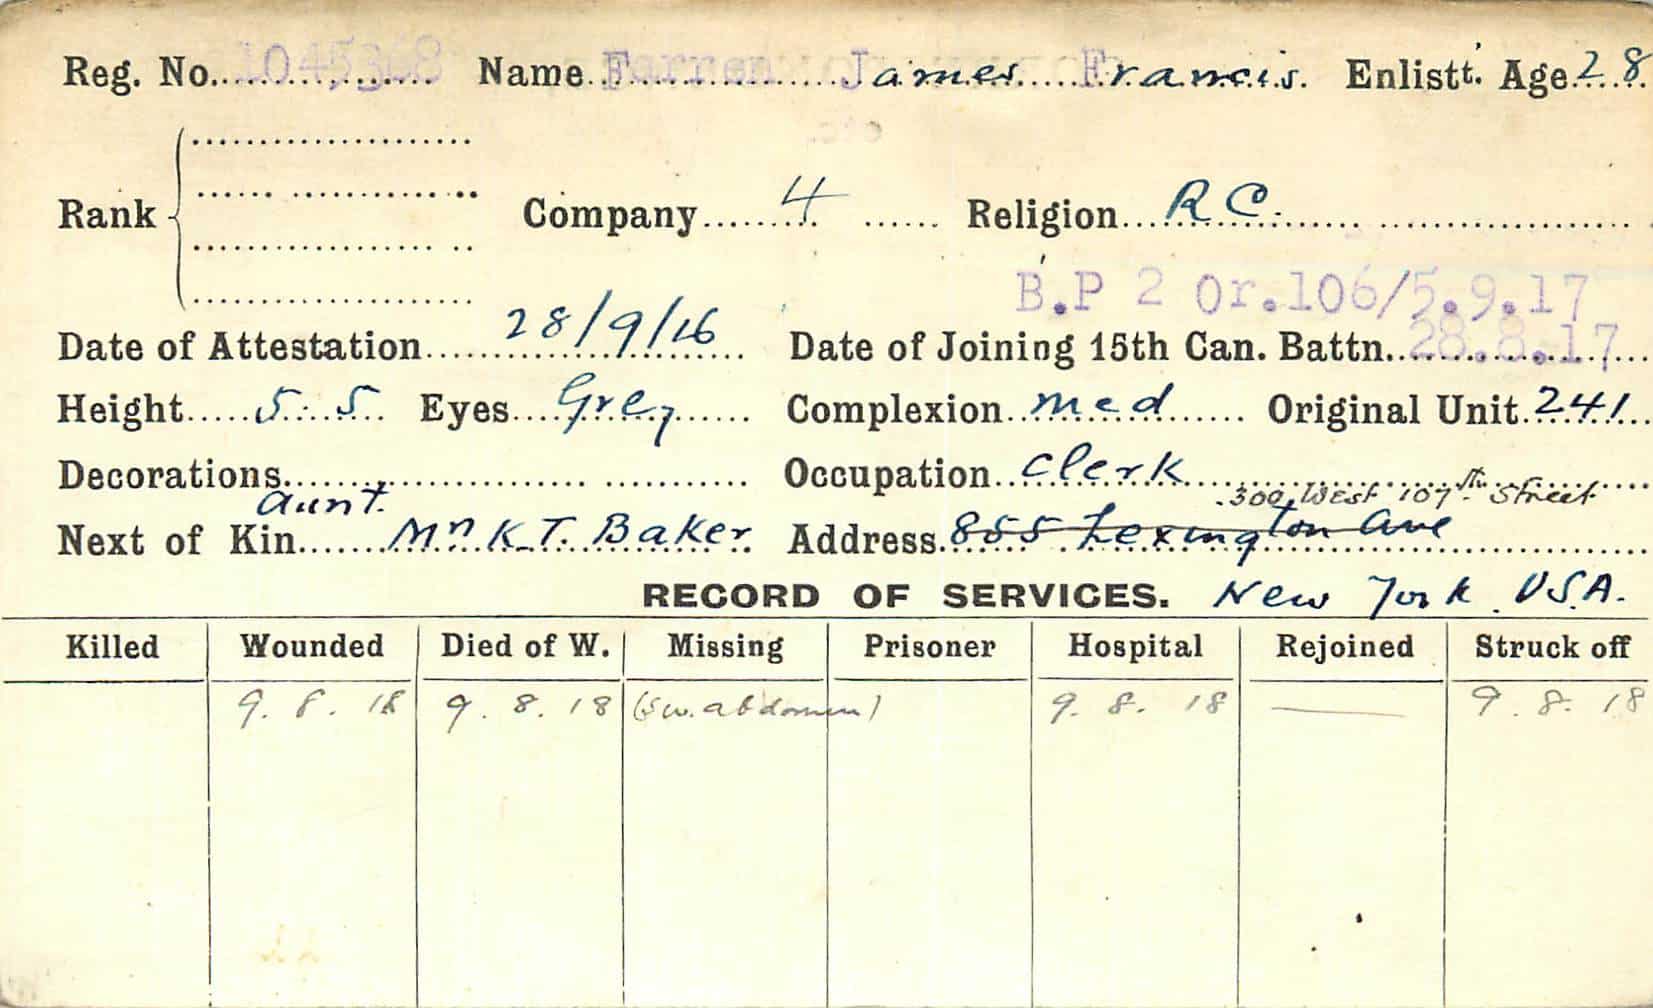 Reg. No. 1045368 Name Farren James Francis. Enlistt. Age 28
Rank Company 4 Religion R C.
B.P 2 Or.106/5.9.17
Date of Attestation 28/9/16 Date of Joining 15th Can. Battn. 28.8.17
Height 5.5 Eyes Grey Complexion med Original Unit 241
Decorations Occupation Clerk
aunt. 300 West 107th Street
Next of Kin K.T. Baker Address 855 Lexington Ave
RECORD OF SERVICES. New York. USA.
Killed Wounded Died of W. Missing Prisoner Hospital Rejoined Struck off
9.8.18 9.8.18 (sw. abdomen) 9.8.18 — 9.8.18